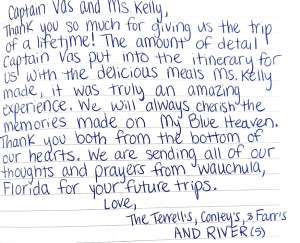 Captain Vas and Ms Kelly,
Thank you so much for giving us the trip
of a lifetime! The amount of detail
Captain Vas put into the itinerary for
us with the delicious meals Ms. Kelly
made, it was truly an amazing
experience. We will always cherish the
memories made on My Blue Heaven.
Thank you both from the bottom of
our hearts. We are sending all of our
thoughts and prayers from Wauchula,
Florida for your future trips.
Love,
The Terrell's, Conley's, & Farr's
AND RIVER (5)